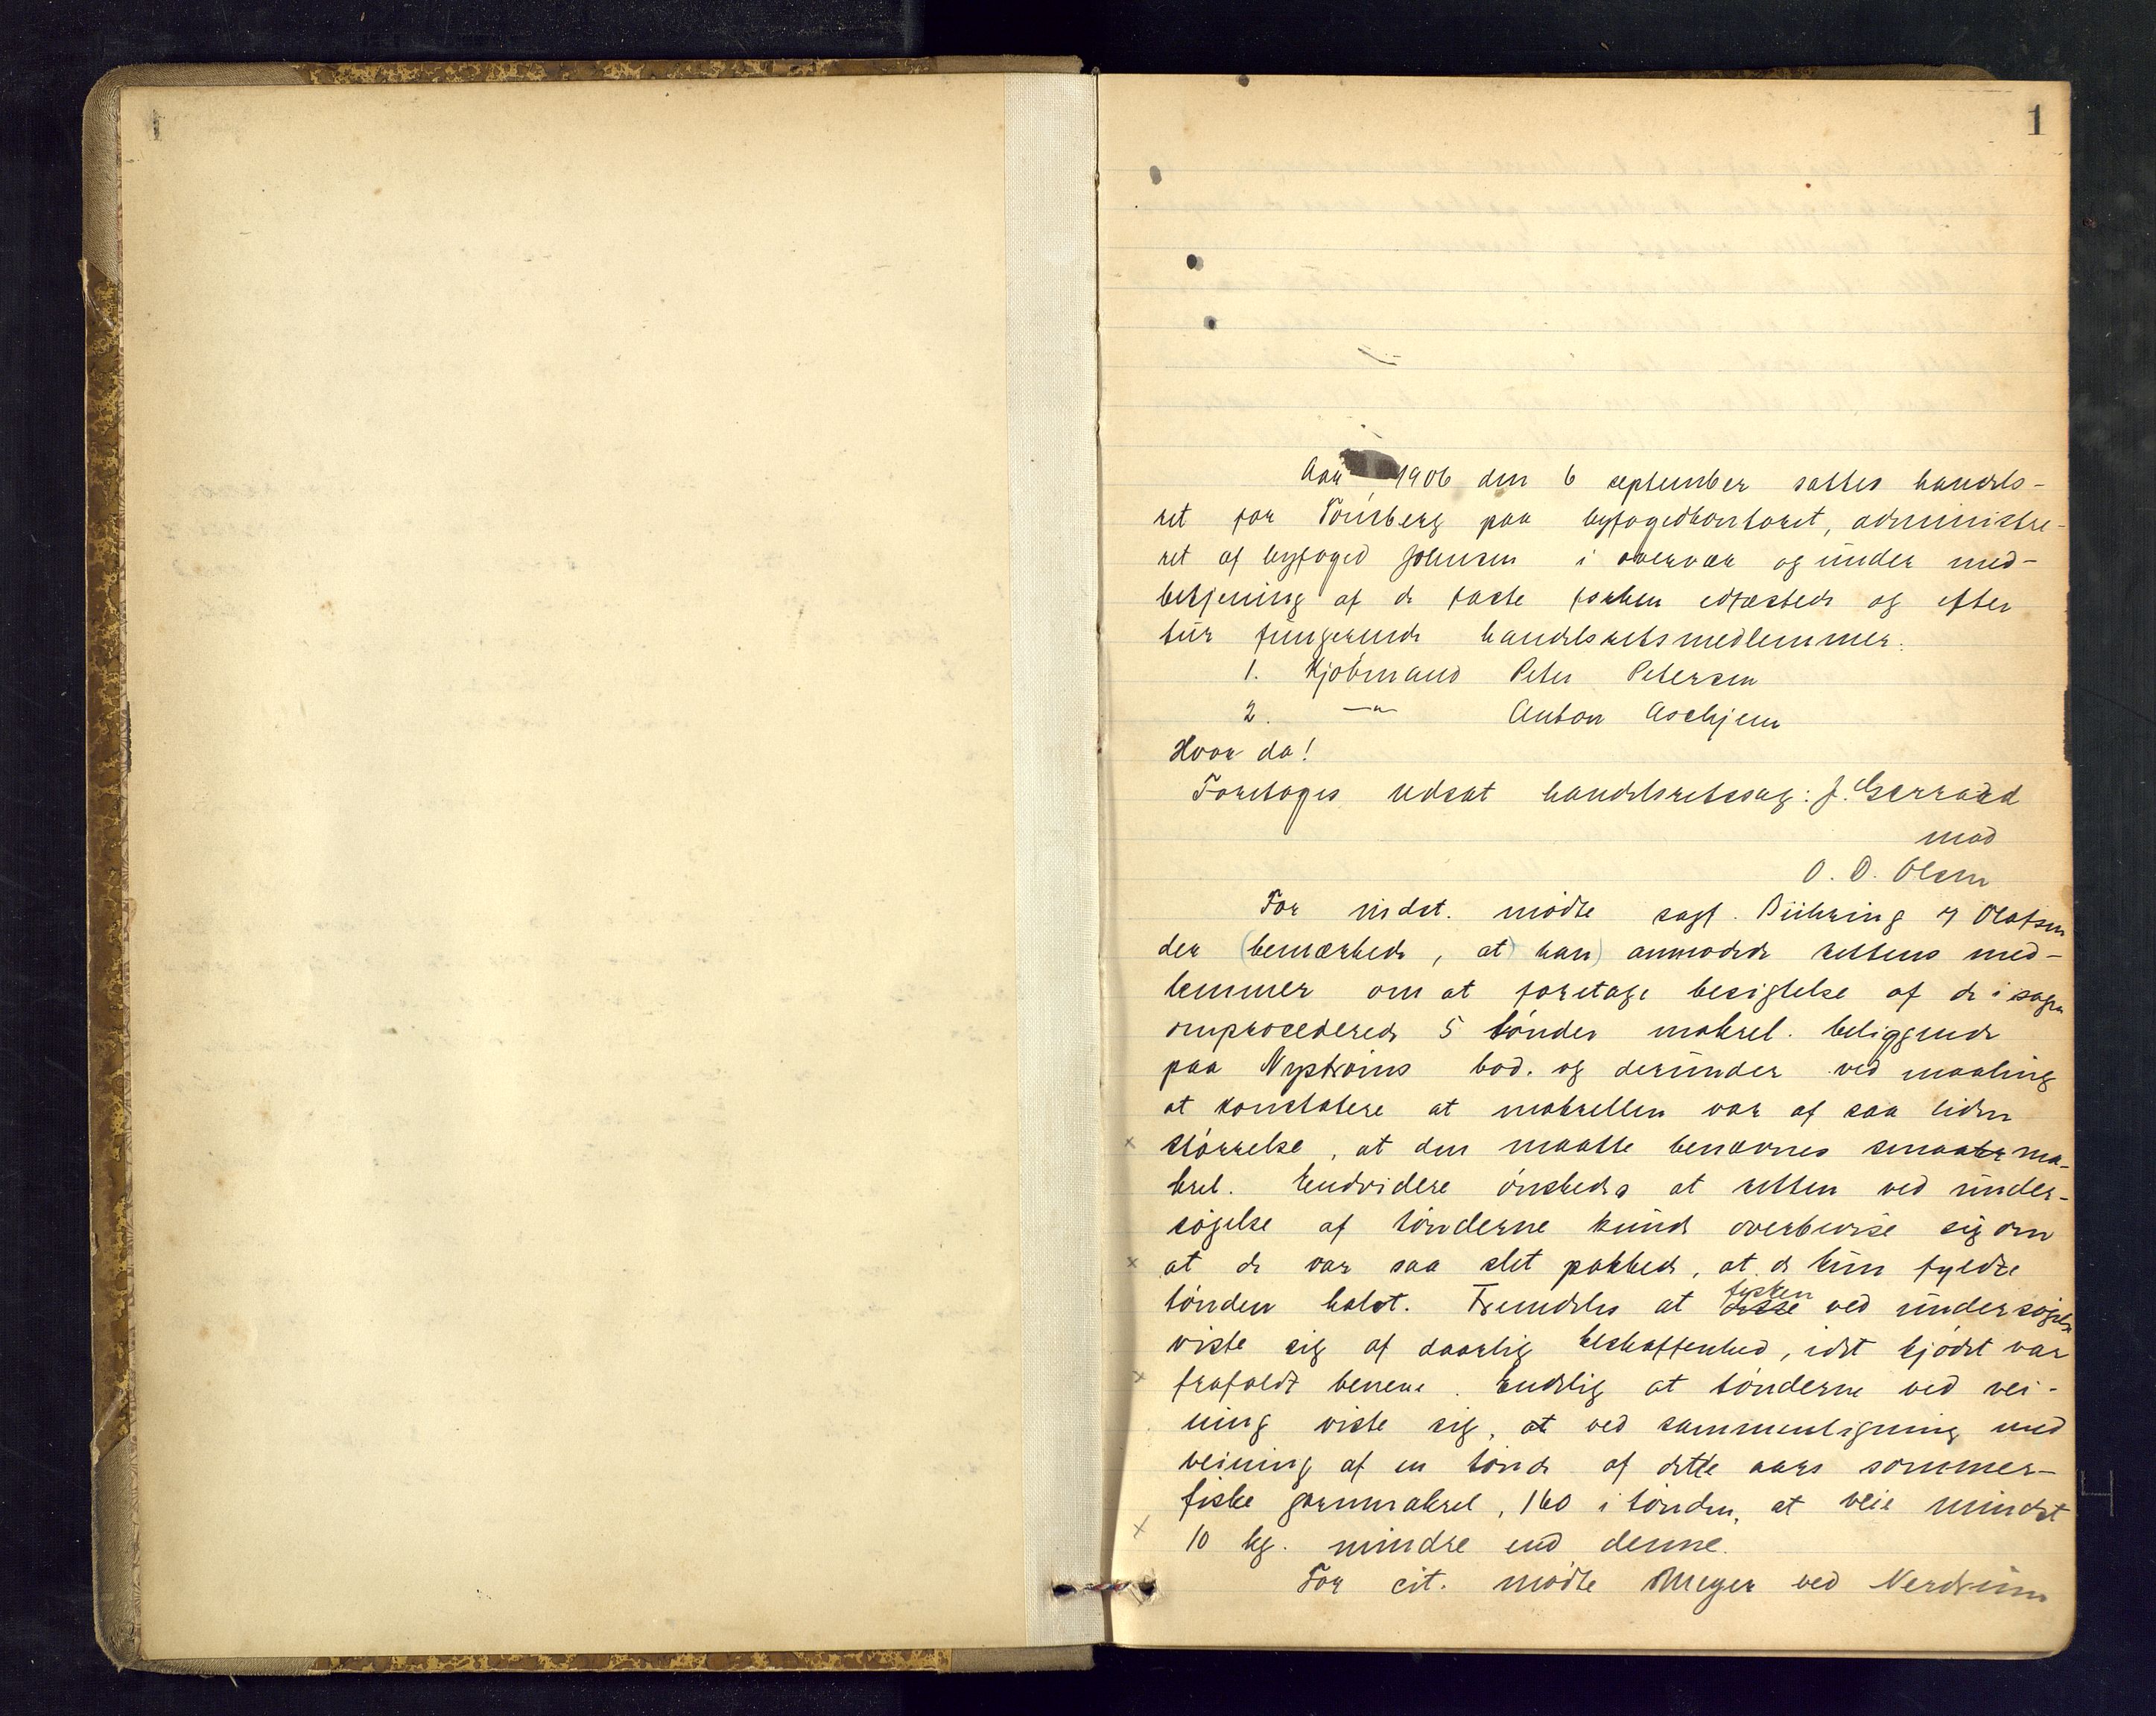 1
Aar 1906 den 6 september sattes handels-
ret for Tønsberg paa byfogedkontoret, administre-
ret af byfoged Johnsen i overvær og under med-
betjening af de faste forhen edfæstede og efter
tur fungerende handelsretsmedlemmer:
1. Kjøbmand Peter Petersen
2. —"— Anton Aschjem
Hvor da!
Foretoges udsat handelsretssag: J. Gerrard
mod
O. O. Olsen
For indst. mødte sagf. Bühring og Olafsen
der (bemærkede, at) han) anmodede rettens med-
lemmer om at foretage besigtelse af de i sagen
omprocederede 5 tønder makrel. beliggende
paa Nystrøms bod. og derunder ved maaling
at konstatere at makrellen var af saa liden
x størrelse, at den maatte benævnes smaater ma-
krel. Endvidere ønskedes at retten ved under-
søgelse af tønderne kunde overbevise sig om
x at de var saa slet pakkede, at de kun fyldte
tønden halvt. Fremdeles at disse fisken ved undersøgelse
viste sig af daarlig beskaffenhed, idet kjødet var
x frafaldt benene. Endelig at tønderne ved vei-
ning viste sig, at ved sammenligning med
veining af en tønde af dette aars sommer-
fiske garnmakrel, 160 i tønden, at veie mindst
x 10 kg. mindre end denne.
For cit. mødte Meyer ved Nerdrum